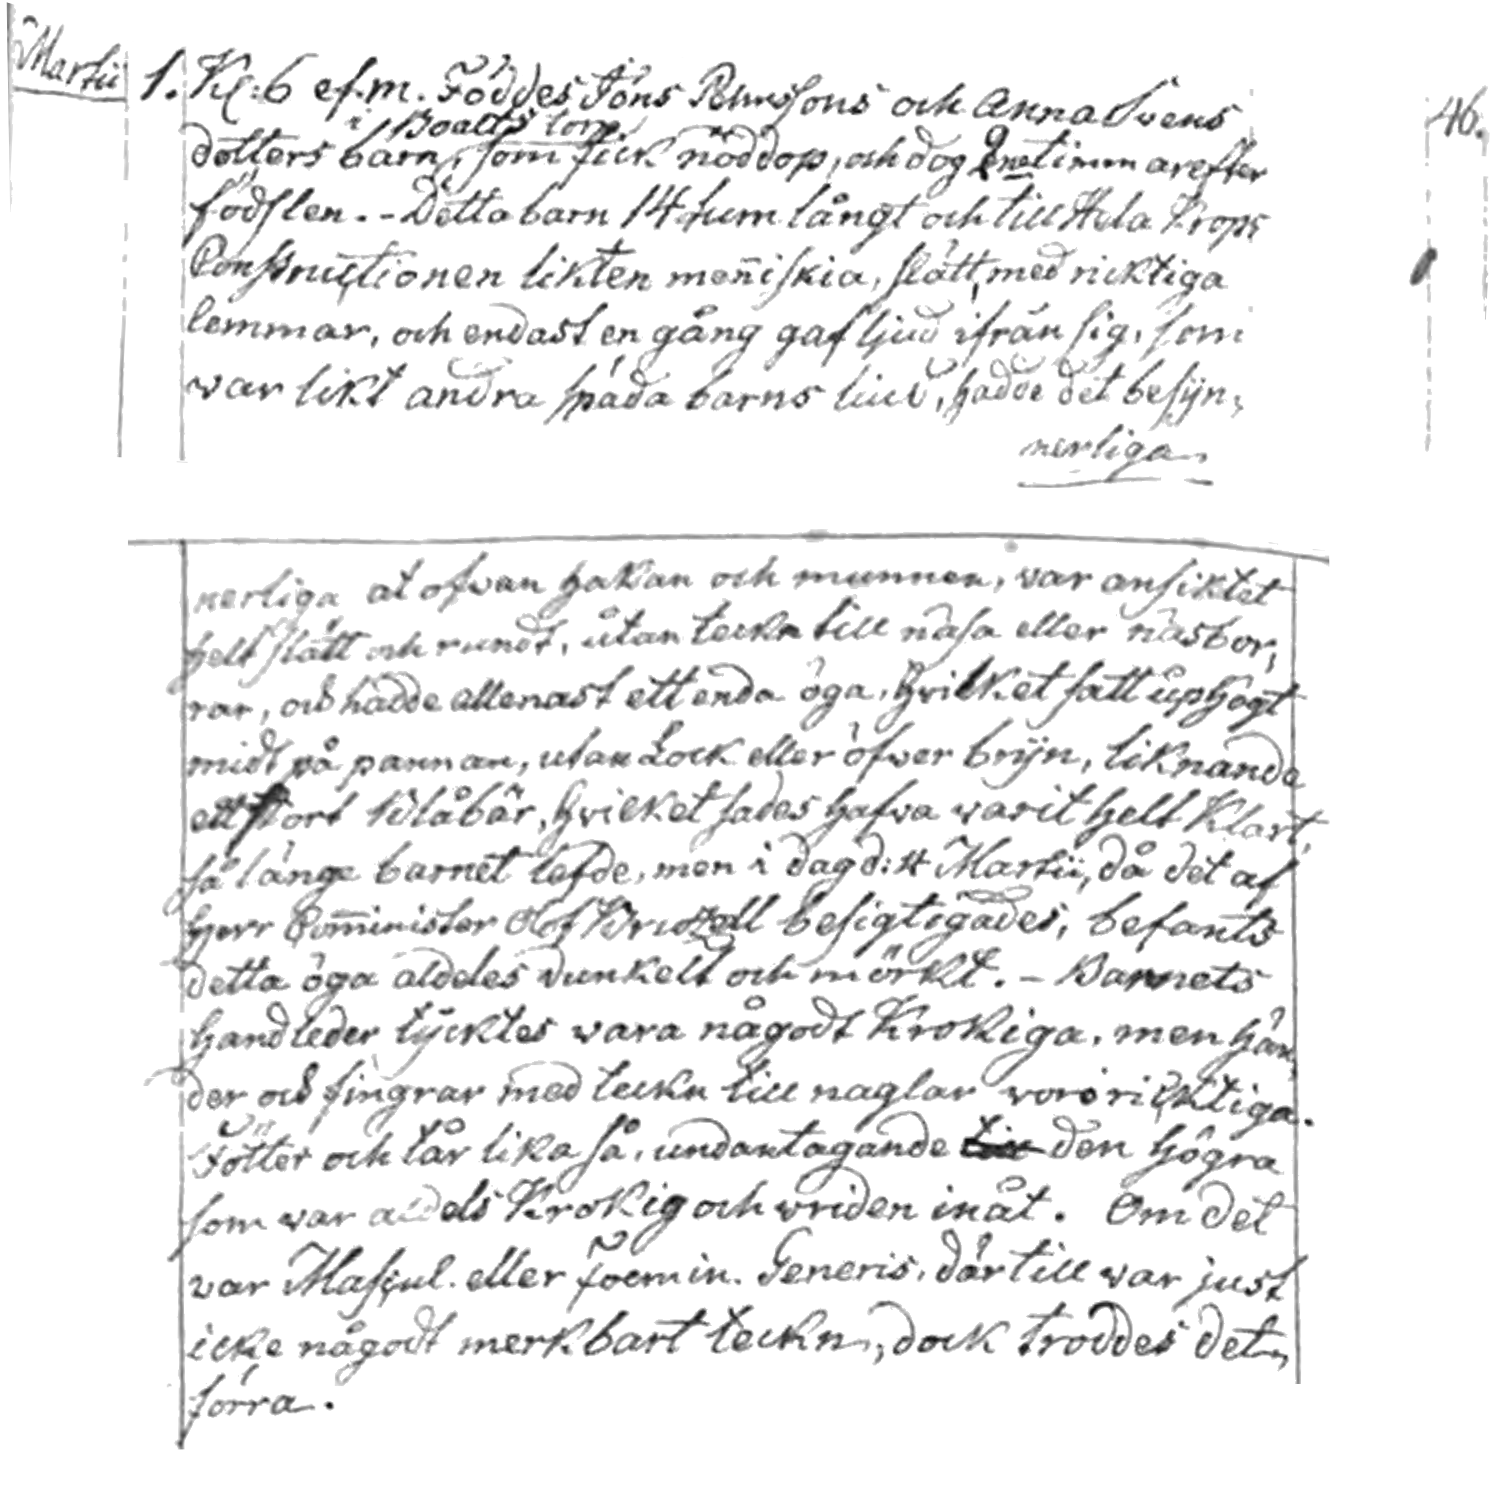 Martii 1. Kl: 6 ef.m. Föddes Jöns Bengssons och Anna Svens 46.
i Boalts torp.
dotters barn, som fick nöddop, och dog timmar efter
födslen. - Detta barn 14 tum långt och till Hela Krops
Constructionen likt en meñiskia, slätt, med ricktiga
lemmar, och endast en gång gaf ljud ifrån sig, som
war likt andra späda barns liud, hadde det besÿn,
nerliga
nerliga at ofvan hakan och munnen, var ansiktet
helt slätt och rundt, utan teckn till näsa eller näsbor,
rar, och hadde allenast ett enda öga, hvilket satt uphögt
midt på pannan, utan Lock eller öfver brÿn, liknande
ett stort Blåbär, hvilket sades hafva varit helt Klart,
så länge barnet lefde, men i dag d: 4 Martii, då det af
Herr Com̄inister Olof Bruzell besigtigades, befants
detta öga aldeles dunkelt och mörkt. - Barnets
handleder tÿcktes wara någodt Krokiga, men hän,
der och fingrar med teckn till naglar voro ricktiga.
Fötter och tår lika så, undantagande den högra
som war aldels Krokig och wriden inåt. Om det
var Mascul. eller foemin. Generis, därtill war just
icke någodt merkbart teckn, dock troddes det
förra.